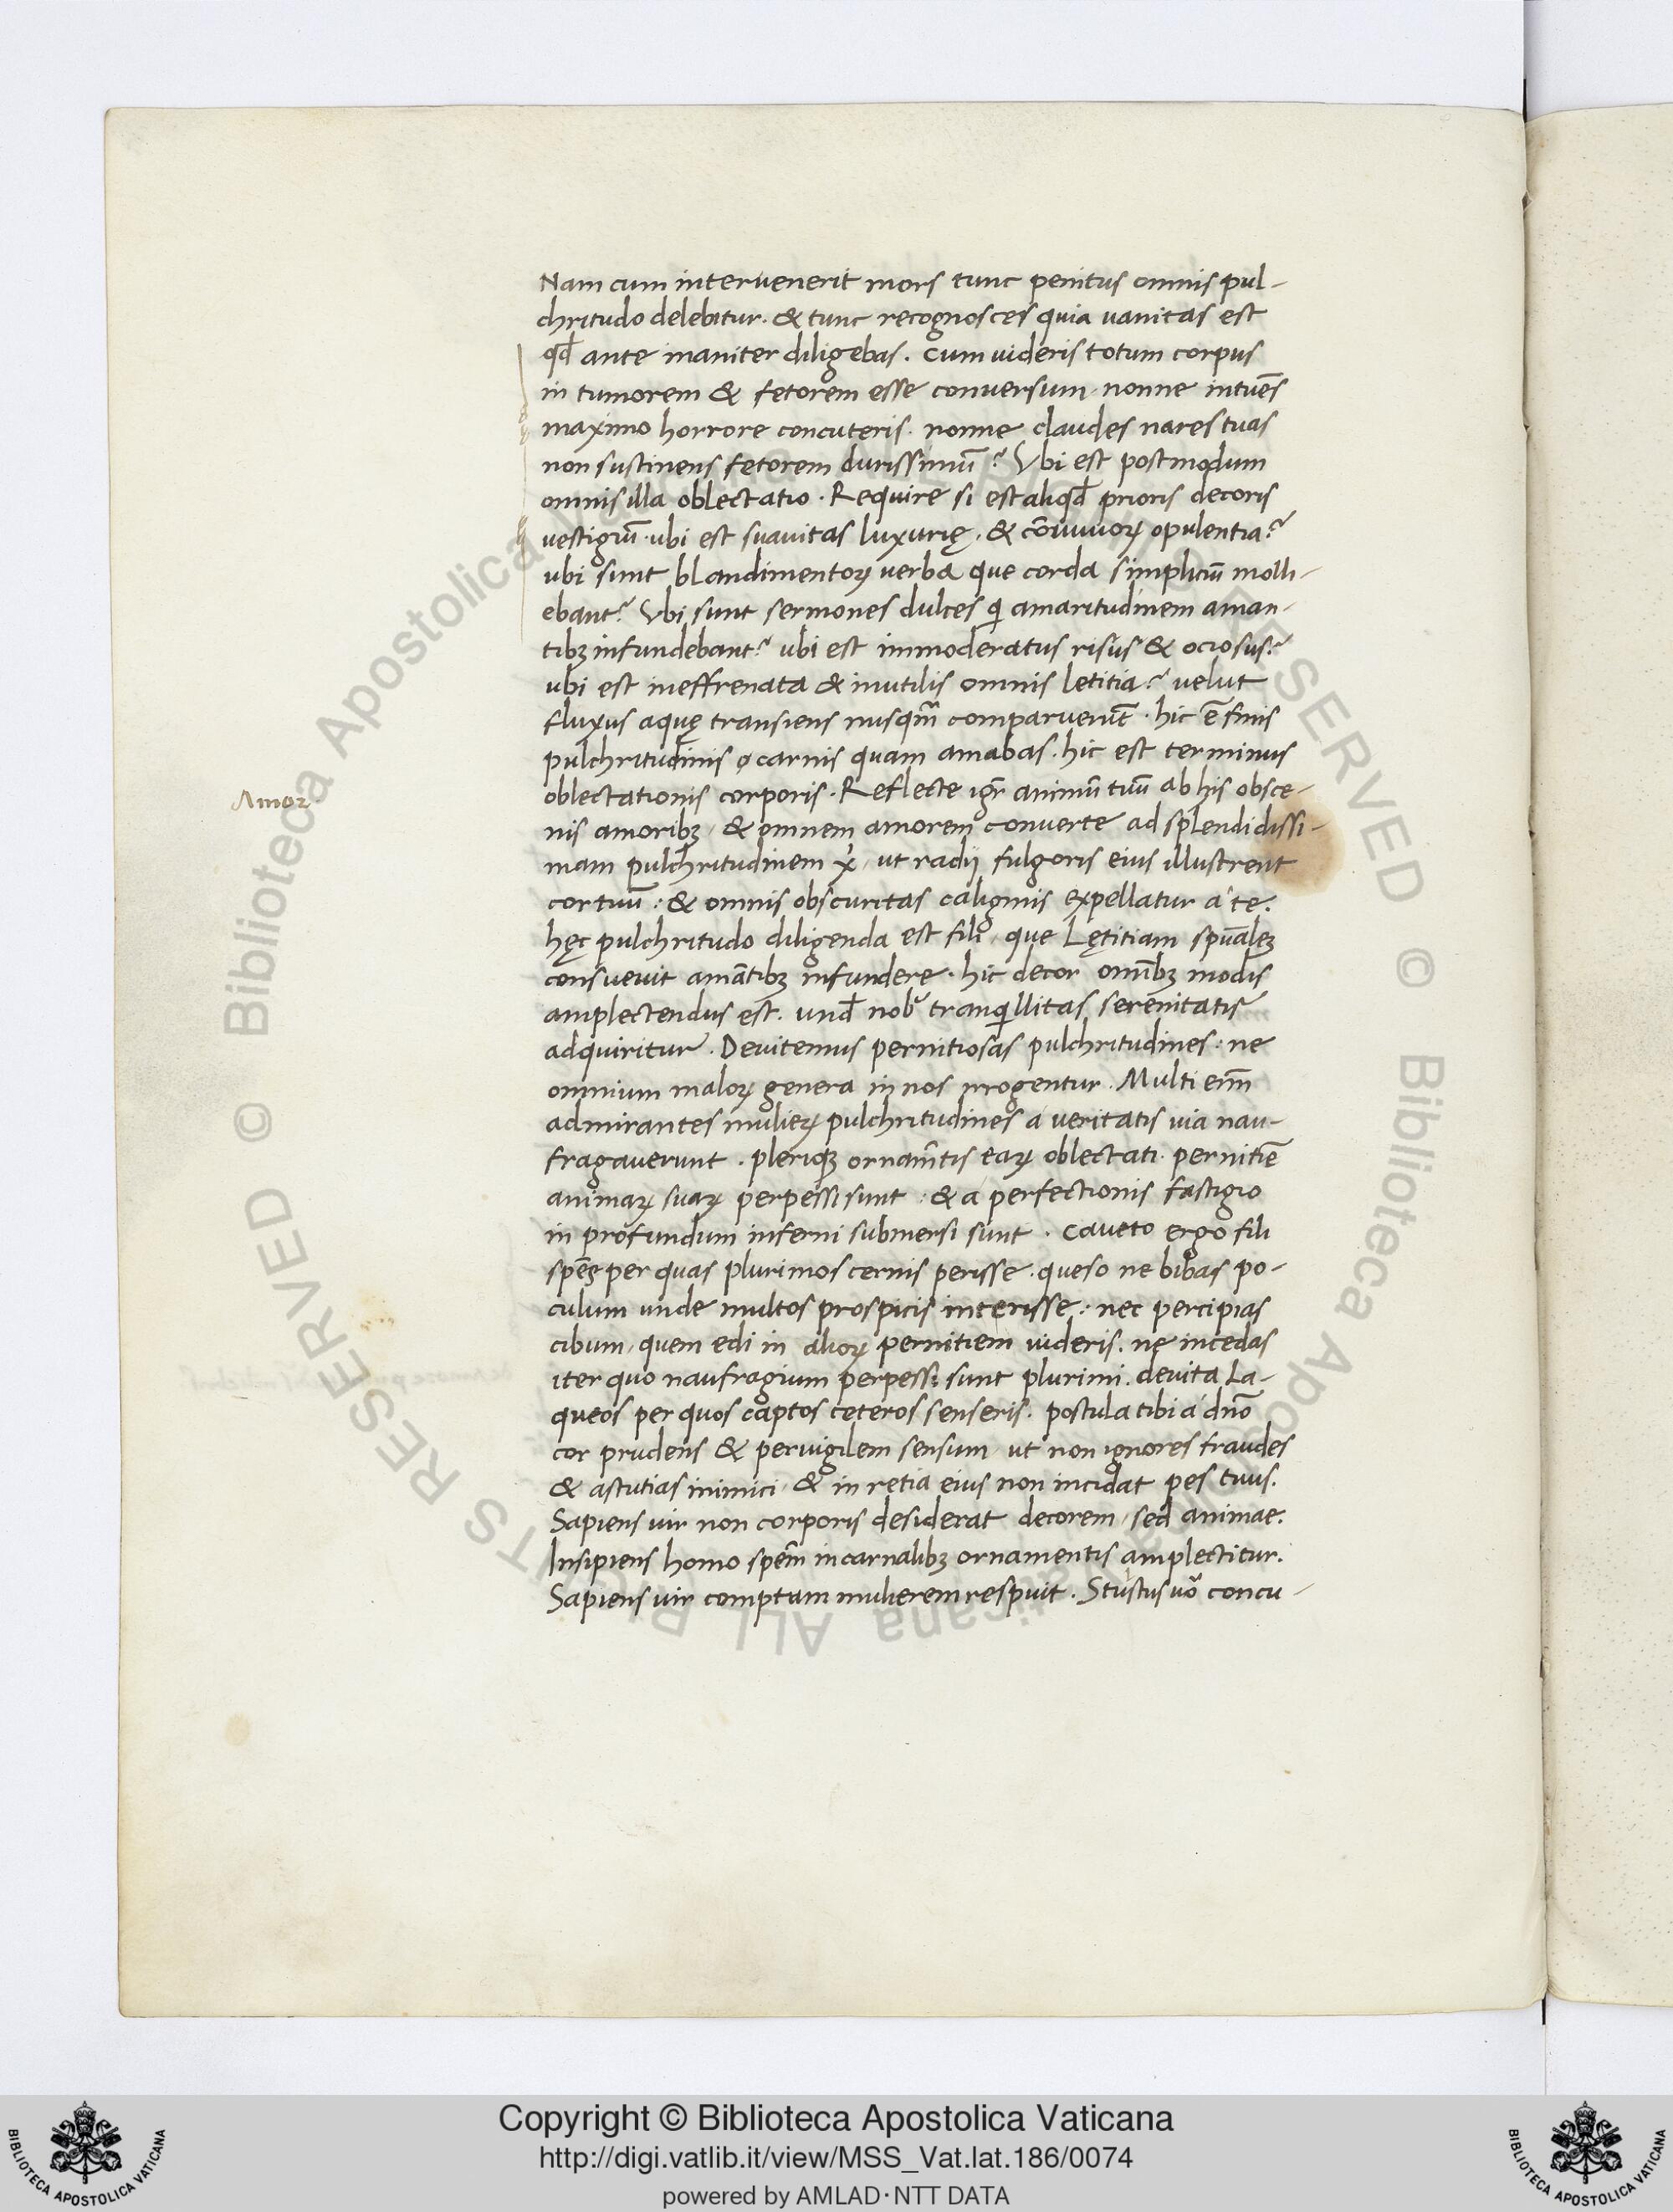 Nam cum intervenerit mors tunc penitus omnis pul-
chritudo delebitur. & tunc recognosces quia vanitas est
qđ ante inaniter diligebas. Cum uideris totum corpus
in tumorem & fetorem esse conversum. nonne intuēs
maximo horrore concuteris. nonne claudes nares tuas
non sustinens fetorem durissimū? Vbi est postmodum
omnis illa oblectatio. Require si est aliqđ prioris decoris
vestigiū. ubi est suavitas luxurię. & cōuiuioꝝ opulentia?
ubi sunt blandimentoꝝ verba que corda simpliciū molli-
ebant? Vbi sunt sermones dulces qi amaritudinem aman-
tibꝫ infundebant? ubi est immoderatus risus & ociosus?
ubi est ineffrenata & inutilis omnis letitia? velut
fluxus aquę transiens nusqm̄ comparuerūt. hic ē finis
pulchritudinis carnis quam amabas. hic est terminus
oblectationis corporis. Reflecte igr̄ animū tuū ab his obsce-
Amor.
nis amoribꝫ, & omnem amorem converte ad splendidissi-
mam pulchritudinem xi, ut radij fulgoris eius illustrent
cor tuū: & omnis obscuritas caliginis expellatur a te.
hęc pulchritudo diligenda est fili, que lętitiam spūalēꝫ
consuevit amātibꝫ infundere. hic decor omībꝫ modis
amplectendus est. und̄ nob̄ tranqillitas serenitatis
adquiritur. Devitemus pernitiosas pulchritudines: ne
omnium maloꝝ genera in nos irrogentur. Multi enī
admirantes mulieꝝ pulchritudines a veritatis via nau-
fragaverunt. pleriqꝫ ornam̄tis eaꝝ oblectati. pernitiē
animaꝝ suaꝝ perpessi sunt: & a perfectionis fastigio
in profundum inferni submersi sunt. Caveto ergo fili
spēs per quas plurimos cernis perisse. queso ne bibas po-
culum unde multos prospicis interisse: nec percipias
cibum, quem edi in alioꝝ pernitiem videris. ne incedas
iter quo naufragium perpessi sunt plurimi. devita la-
queos per quos captos ceteros senseris. postula tibi a dn̄o
cor prudens & pervigilem sensum, ut non ignores fraudes
& astutias inimici, & in retia eius non incidat pes tuus.
Sapiens uir non corporis desiderat decorem, sed animae.
Insipiens homo spem̄ in carnalibꝫ ornamentis amplectitur.
Sapiens uir comptam mulierem respuit. Stustus uō concu-
© Biblioteca Apostolica Vaticana ALL RIGHTS RESERVED
Copyright © Biblioteca Apostolica Vaticana
http://digi.vatlib.it/view/MSS_Vat.lat.186/0074
powered by AMLAD·NTT DATA
BIBLIOTECA APOSTOLICA VATICANA
BIBLIOTECA APOSTOLICA VATICANA